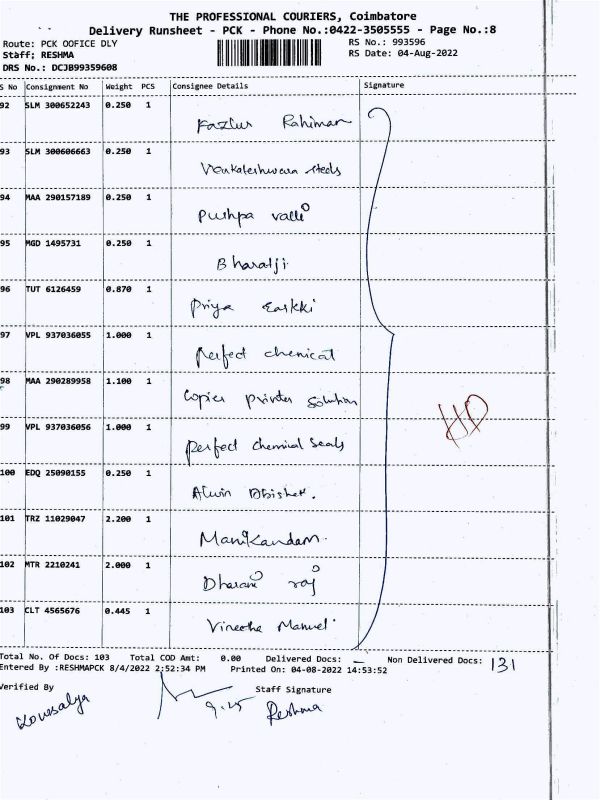 THE PROFESSIONAL COURIERS, Coimbatore
Delivery Runsheet - PCK - Phone No.:0422-3505555 - Page No.:8
Route: PCK OOFICE DLY RS No.: 993596
Staff: RESHMA RS Date: 04-Aug-2022
DRS No.: DCJB99359608
S No Consignment No Weight PCS Consignee Details Signature
92 SLM 300652243 0.250 1 Fazlur Rahiman
93 SLM 300606663 0.250 1 Venkateshwara steels
94 MAA 290157189 0.250 1 Pushpa valli
95 MGD 1495731 0.250 1 Bharatji
96 TUT 6126459 0.870 1 Priya
97 VPL 937036055 1.000 1 Perfect chemical
98 MAA 290289958 1.100 1 Copier printer solution
99 VPL 937036056 1.000 1 perfect chemical seals
100 EDQ 25090155 0.250 1 Alwin
101 TRZ 11029047 2.200 1 Manikandam.
102 MTR 2210241 2.000 1 Dharani raj
103 CLT 4565676 0.445 1 Manuel
Total No. Of Docs: 103 Total COD Amt: 0.00 Delivered Docs: — Non Delivered Docs: 131
Entered By :RESHMAPCK 8/4/2022 2:52:34 PM Printed On: 04-08-2022 14:53:52
Verified By Staff Signature
Kowsalya Reshma